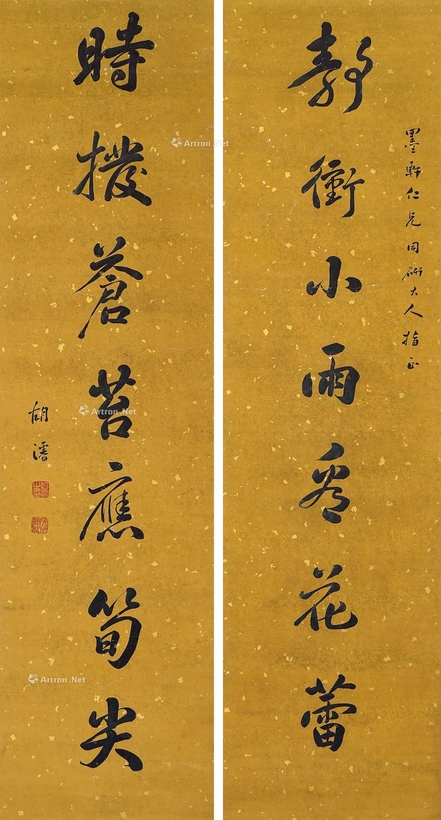 數衝小雨看花蕾
墨軒仁兄同研大人指正
時撥蒼苔應筍尖
胡
Artron.Net
Artron.Net
Artron.Net